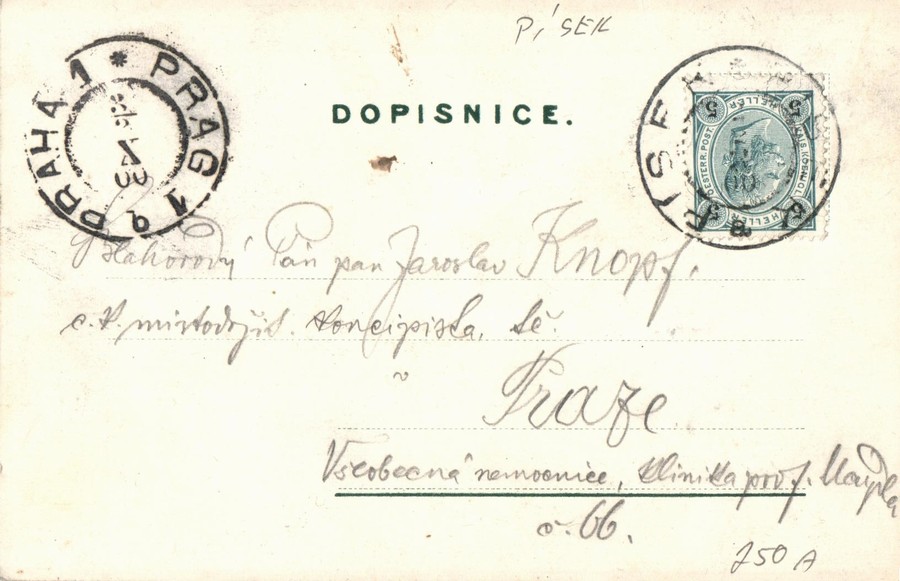 PÍSEK
PRAHA 1 * PRAG 1
DOPISNICE.
PISEK
5 HELLER 5
Blahorodý Pán pan Jaroslav Knopf.
c. k. místodržit. koncipista, t.č.
v
Praze
Všeobecná nemocnice, klinika prof. Maydla
č. 66.
250 A